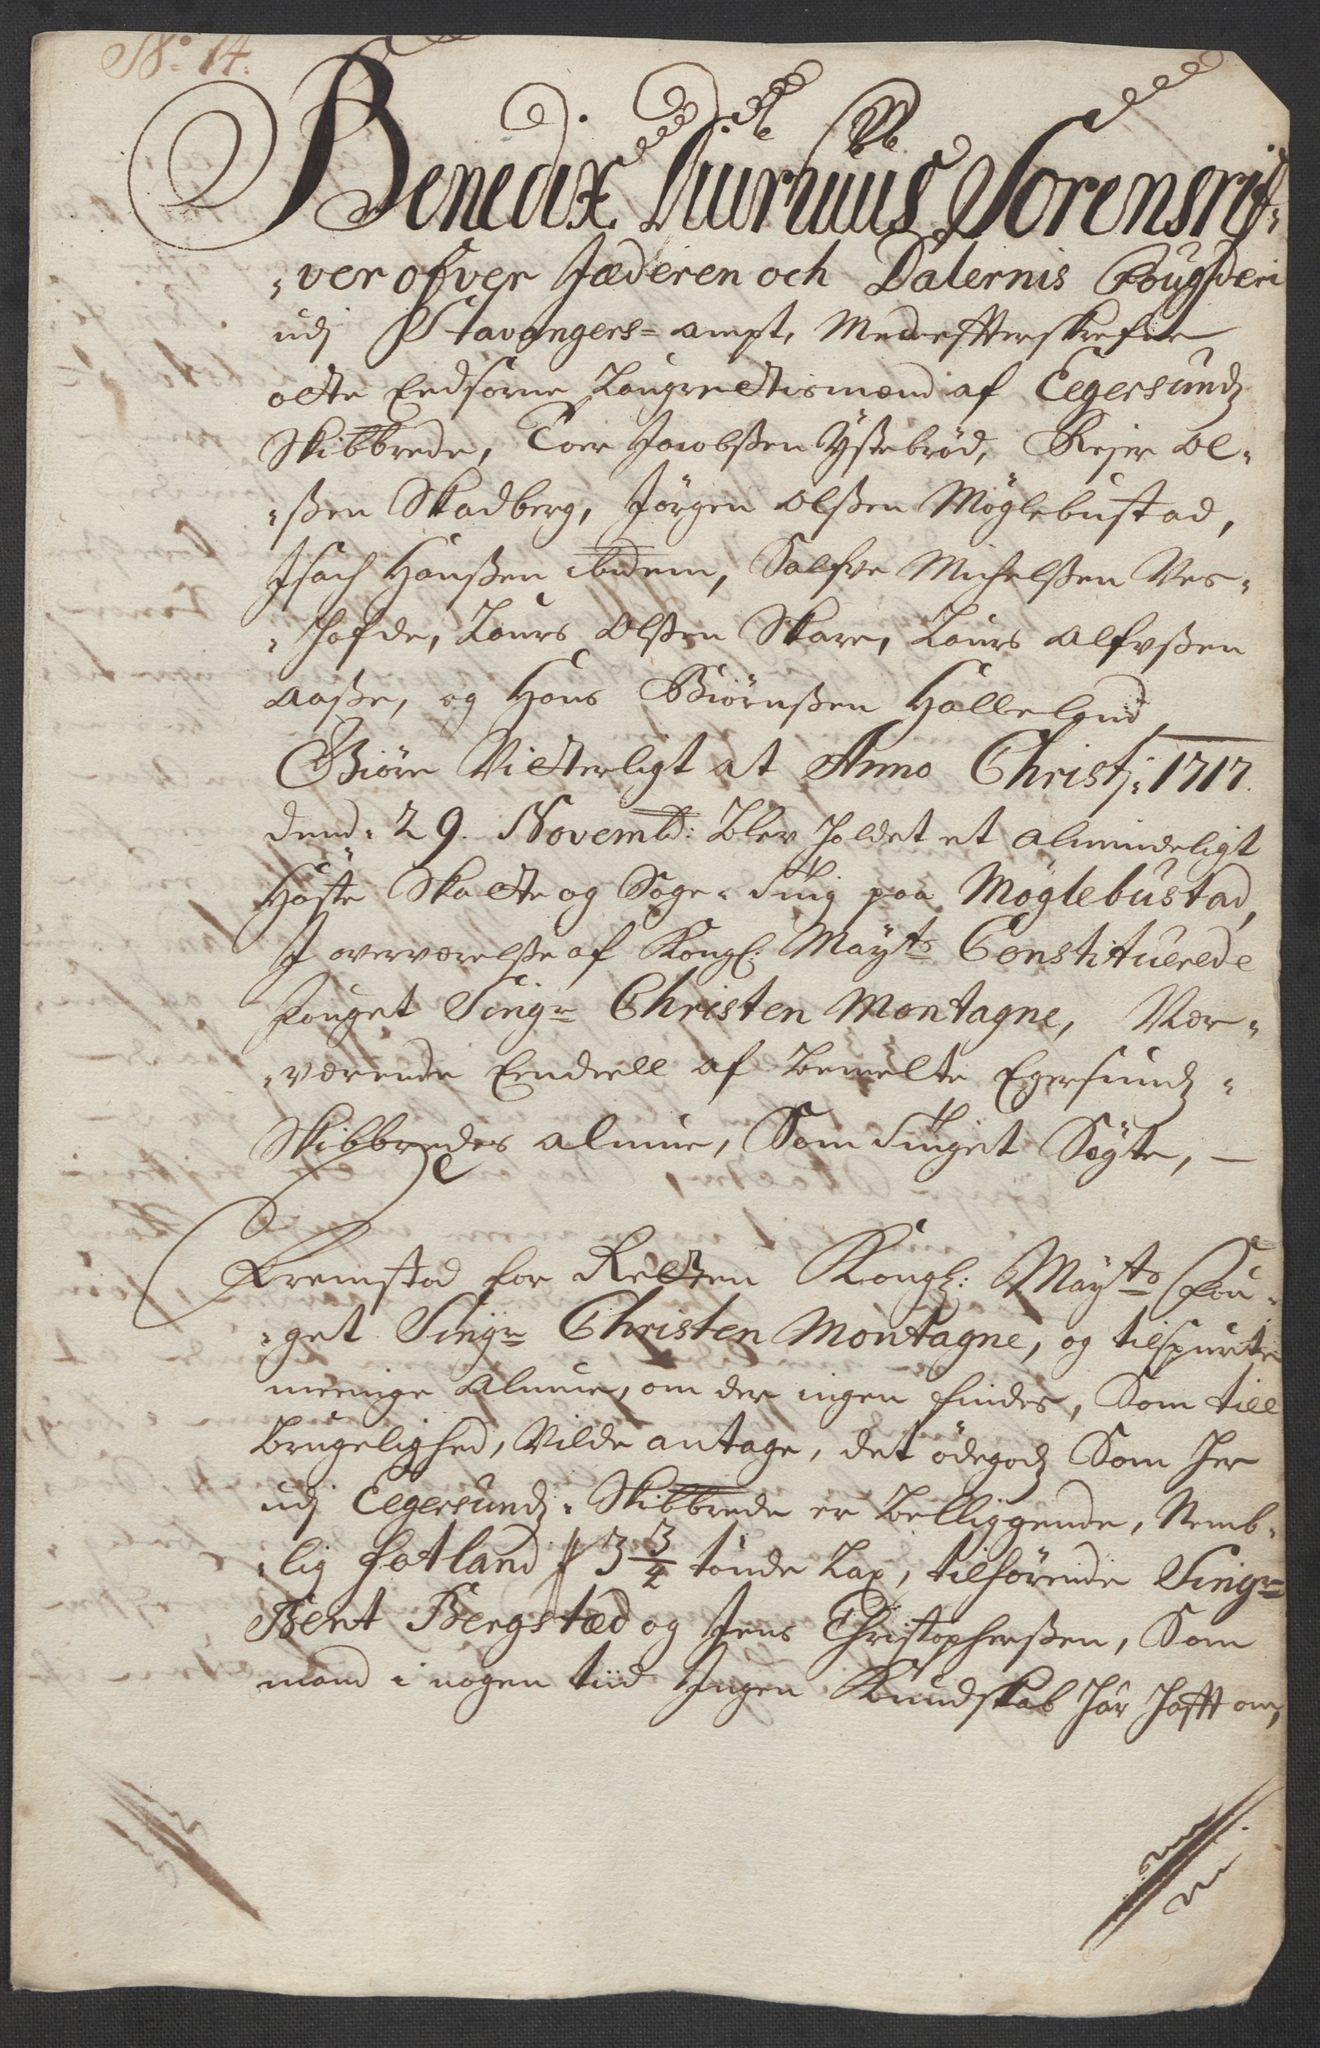 No: 14.
Benedix Diurhuus Sorenskrif-
-ver ofver Jæderen och Dalernis Fougderi
udj Stavangers-ampt, Med efterskrefne
otte Eedsorne Laugrettismænd af Eegersundz
Skibbrede, Toer Jacobßen Ÿstebrød, Rejer Ol-
-ßen Skadberg, Jørgen Olßen Møglebustad,
Isach Hanßen ibidem, Salfve Michelßen Ves-
-hofde, Laurs Olßen Skare, Laurs Alfvßen
Aaße, og Hans Biørnßen Hålleland,
Giøre Vitterligt at Anno Christj: 1717.
dend: 29. Novembr: blev holdet et almindeligt
Høste Skatte og Sage-Ting paa Møglebustad,
J overværelße af Kongl: Mayts Constituerede
fouget Singr Christen Montagne, Nær-
-værende Eendeell af bemelte Egersundz-
Skibbredes almue, Som Tinget Søgte, —
Fremstod for Retten Kongl: Mayts Fou-
-get Singr Christen Montagne, og tilspurte
meenige Almue, om der ingen findes, Som till
brugelighed, Vilde antage, det ödegodz Som her
udj Eegersundz-Skibbrede er beliggende, Nemb-
-lig Fotland 3 3/4 tønde Lax, tilhørende Singr
Bent Bergsted og Jens Christophersßen, Som
mand i nogen tiid Ingen Kundskab har hafft om,